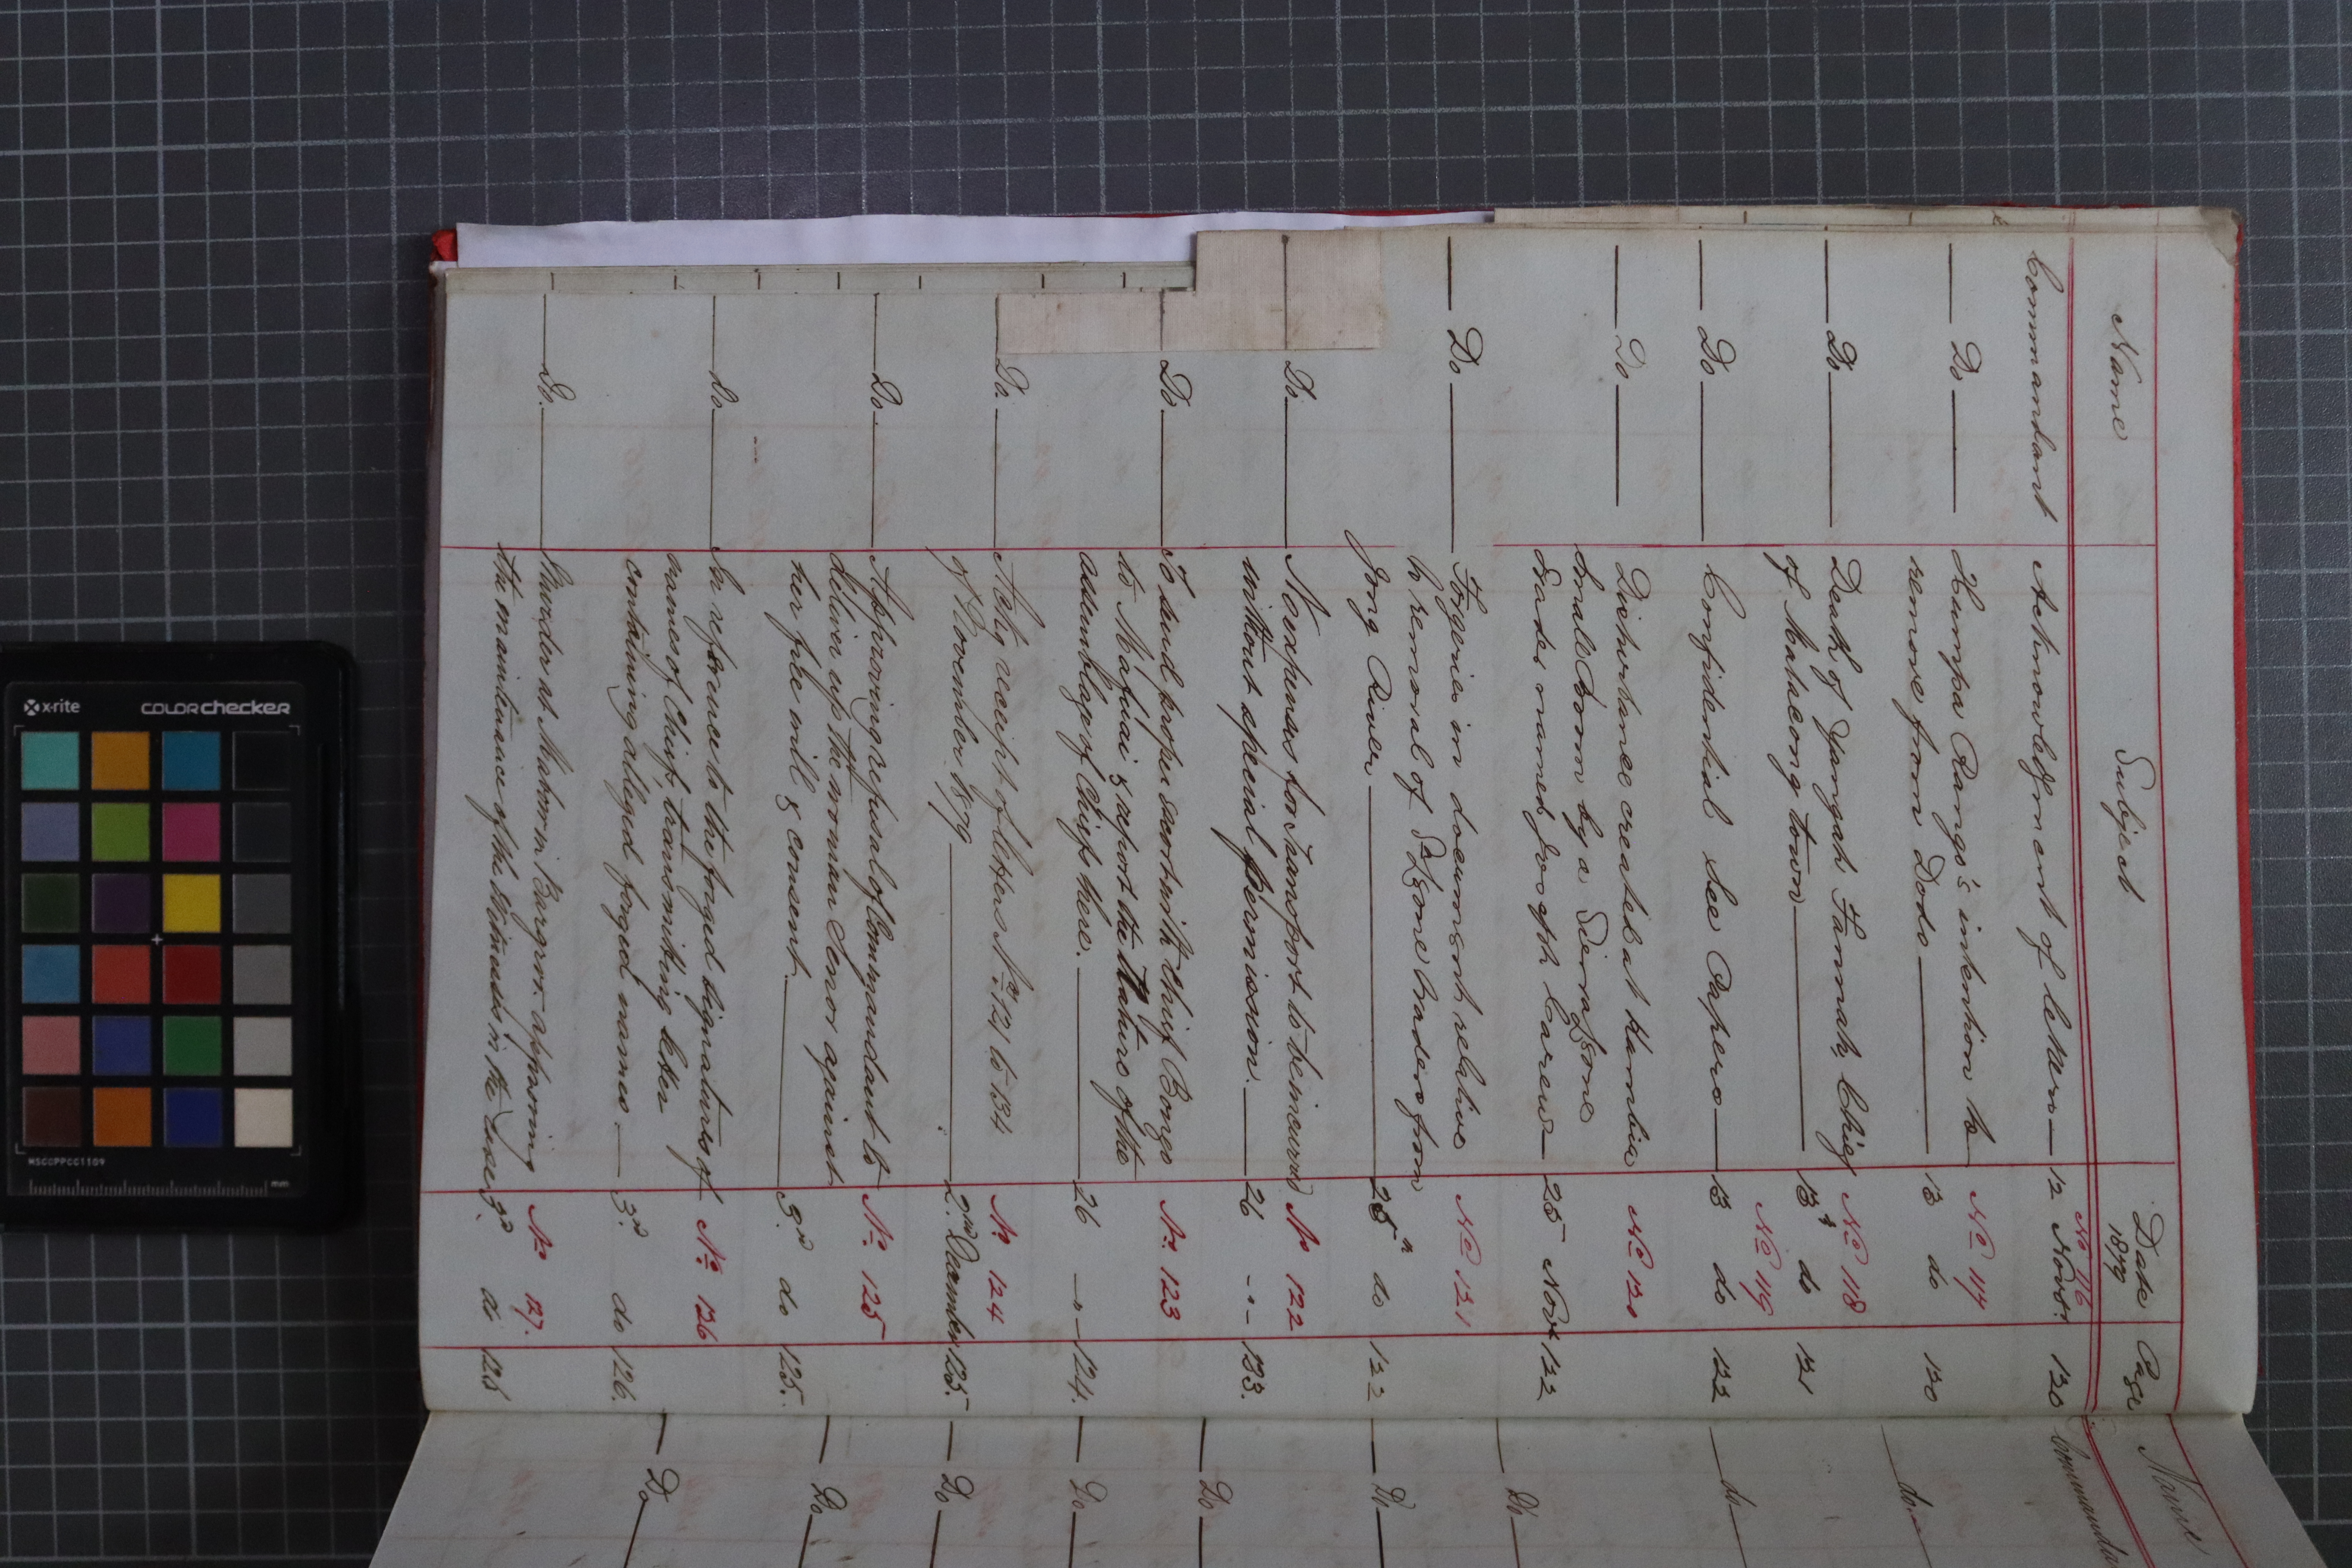 Name Subject Date 1879 Page
No 116
Commandant Acknowledgment of letters — 12 Novr. 120
No 117
Do Kumpa Rango's intention to
remove from Dodo — 13 do 120
No 118
Do Death of Yangah Farmah, Chief
of Matacong town — 13th do 121
No 119
Do Confidential See Papers — 13 do 122
No 120
Do Disturbance created at Kambia
by a Sierra Leone
trader named Joseph Carew — 25 Novr 122
No 121
Do Forgeries in document relative
to removal of S. Leone traders from
Jong River — 25th do 122
No 122
Do No expenses for Transport to be incurred
without special permission. — 26 -"- 123.
No. 123
Do To send proper escort with Chief Bongo
to Mafuai & report the Nature of the
assemblage of Chiefs here. — 26 -"- 124.
No 124
Do. Ackg receipt of letters Nos. 121 to 134
of November 1879 — 2nd December 125.
No. 125
Do. Approving refusal of Commandant to
deliver up the woman Senor against
her free will & consent — 3rd do 125.
No. 126
Do. In reference to the forged signatures of
names of Chiefs, transmitting letter
containing alleged forged names — 3rd do 126.
No 127.
Do. Murder at in Bargroo approving
the maintenance of the Witnesses in the case 3rd do 126
Name
Commandant
do
do
Do
Do
Do
Do
Do
Do
Do
x-rite
colorchecker
MSCCPPCC1109
mm